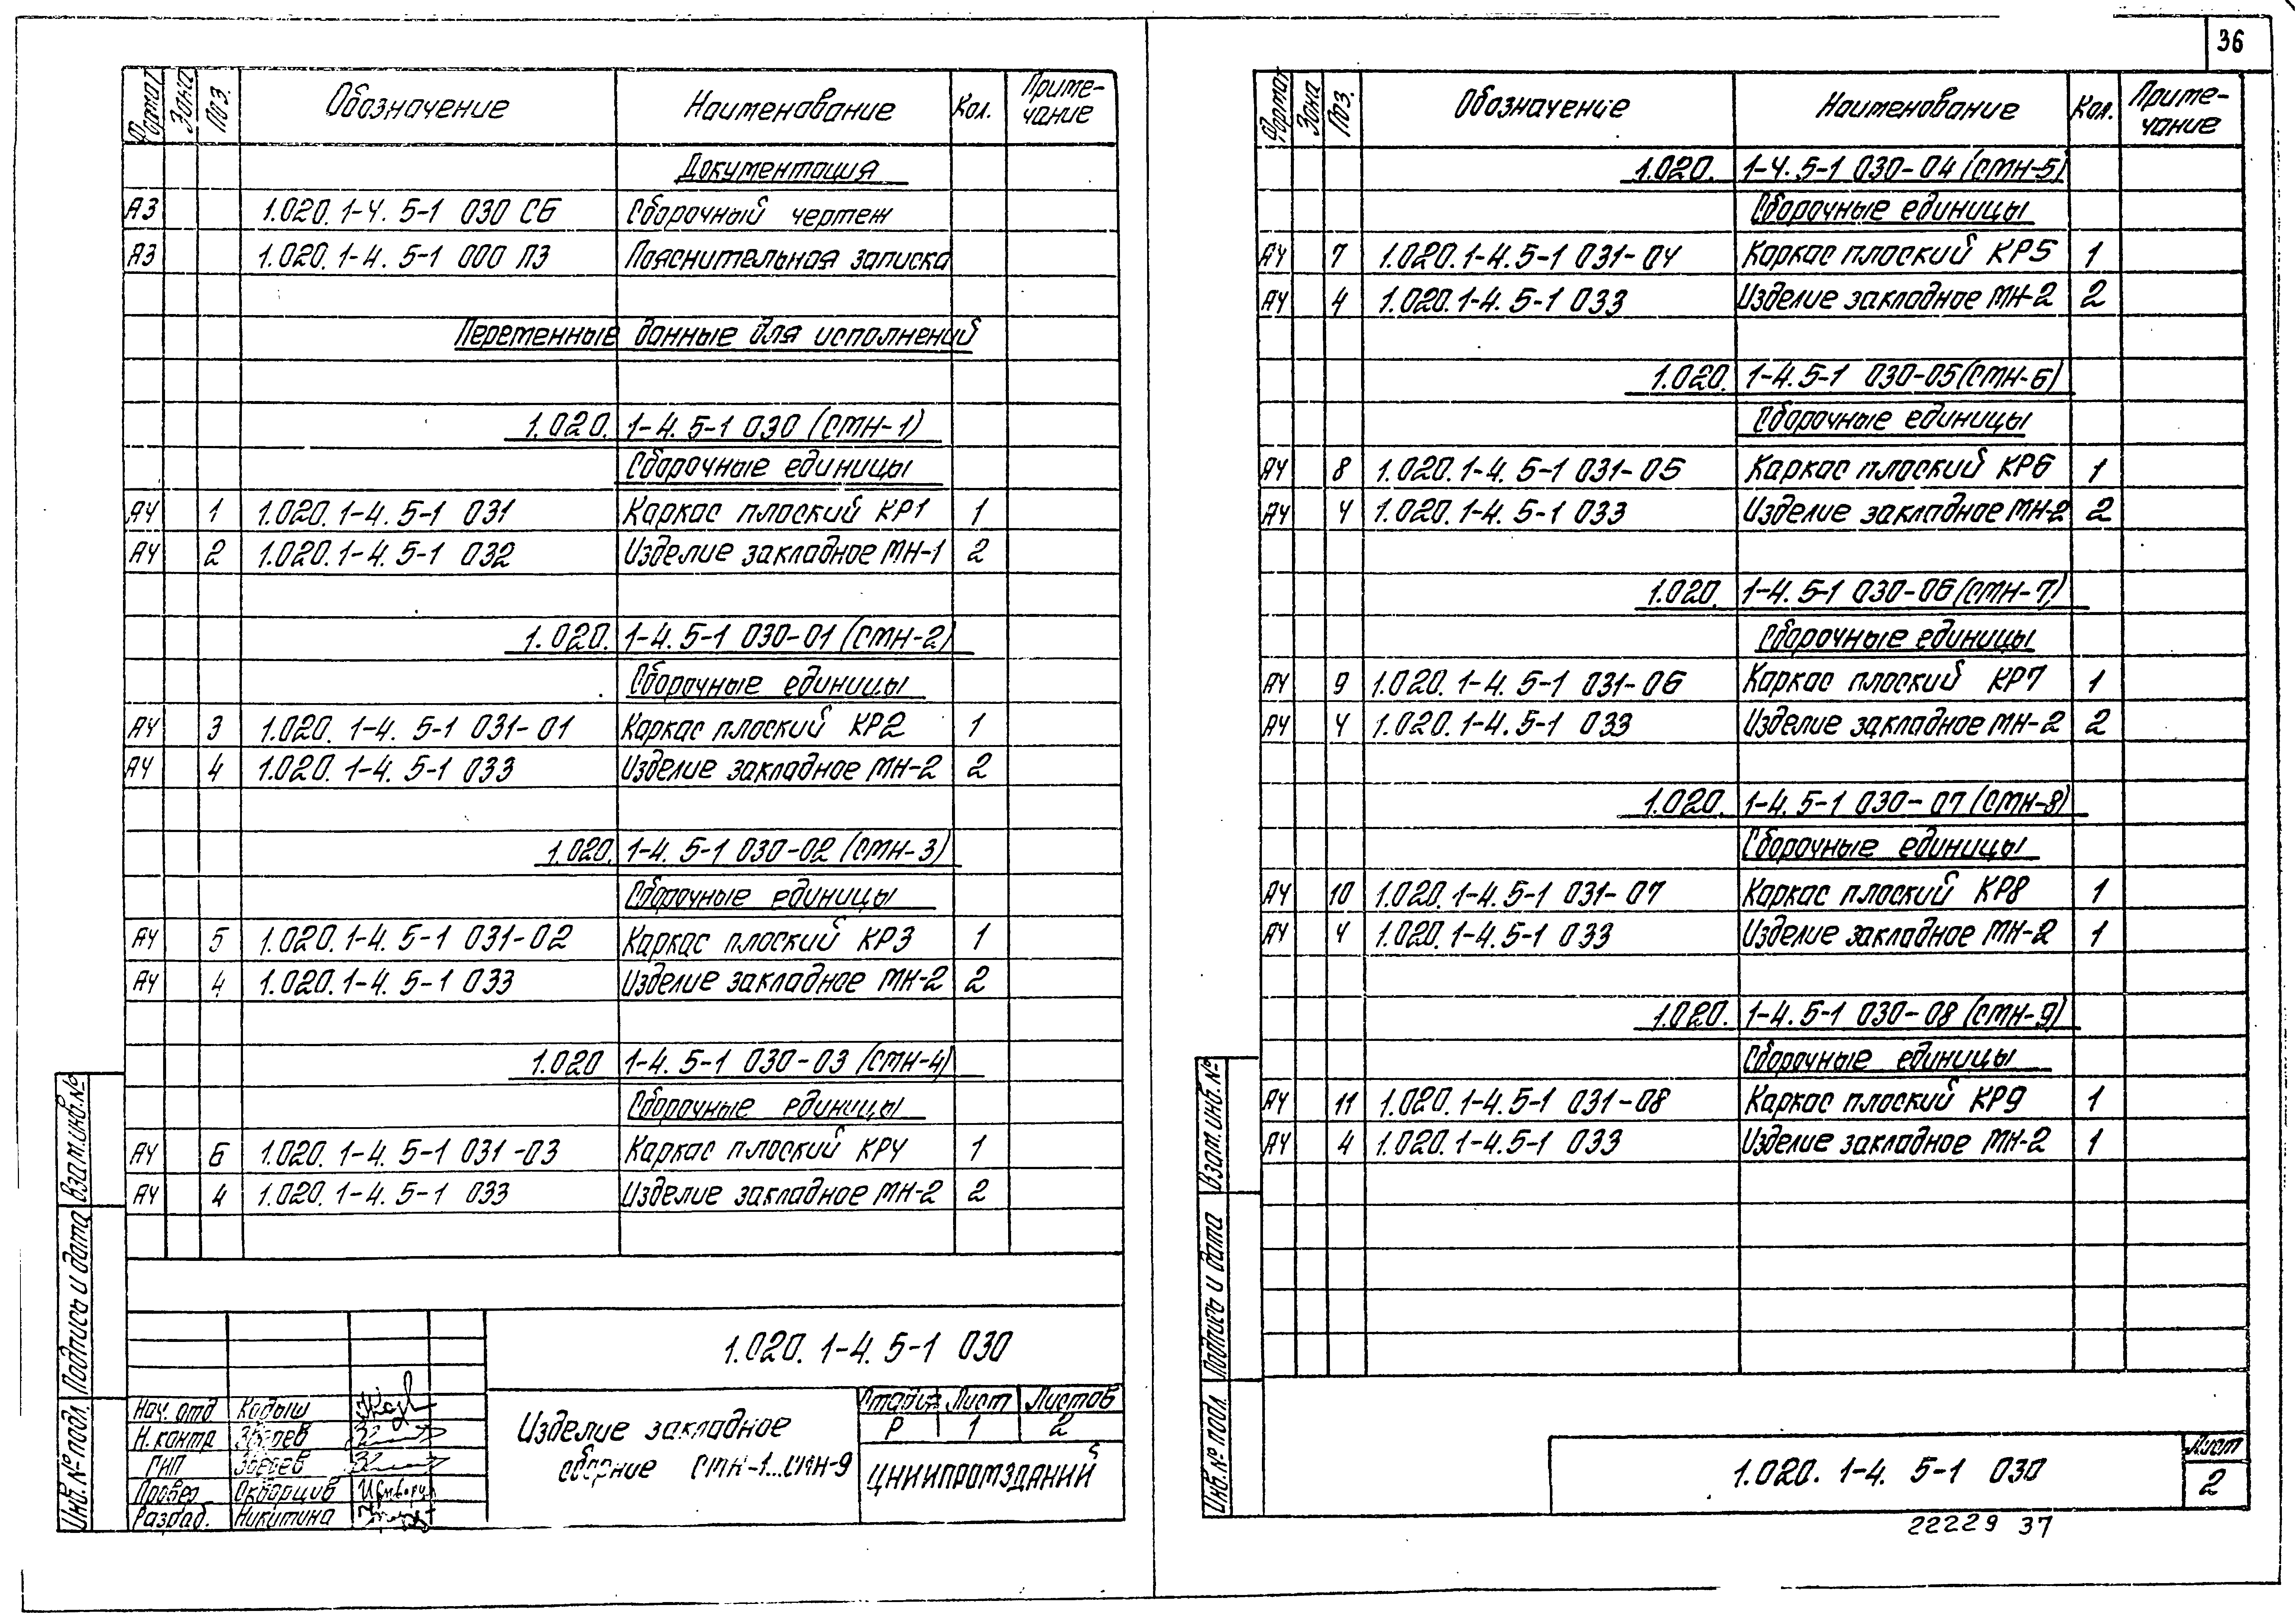 36
Формат Зона Поз. Обозначение Наименование Кол. Приме-
чание
Документация
А3 1.020.1-4.5-1 030 СБ Сборочный чертеж
А3 1.020.1-4.5-1 000 ПЗ Пояснительная записка
Переменные данные для исполнений
1.020.1-4.5-1 030 (СМН-1)
Сборочные единицы
А4 1 1.020.1-4.5-1 031 Каркас плоский КР1 1
А4 2 1.020.1-4.5-1 032 Изделие закладное МН-1 2
1.020.1-4.5-1 030-01 (СМН-2)
Сборочные единицы
А4 3 1.020.1-4.5-1 031-01 Каркас плоский КР2 1
А4 4 1.020.1-4.5-1 033 Изделие закладное МН-2 2
1.020.1-4.5-1 030-02 (СМН-3)
Сборочные единицы
А4 5 1.020.1-4.5-1 031-02 Каркас плоский КР3 1
А4 4 1.020.1-4.5-1 033 Изделие закладное МН-2 2
1.020 1-4.5-1 030-03 (СМН-4)
Сборочные единицы
А4 6 1.020.1-4.5-1 031-03 Каркас плоский КР4 1
А4 4 1.020.1-4.5-1 033 Изделие закладное МН-2 2
Взам.инв.№
Подпись и дата
Инв.№ подл.
1.020.1-4.5-1 030
Нач. отд Кодыш
Н.контр Зверев
ГИП Зверев
Провер Скворцов
Разраб. Никитина
Изделие закладное
сборние СМН-1...СМН-9
Стадия Лист Листов
Р 1 2
ЦНИИПРОМЗДАНИЙ
Формат Зона Поз. Обозначение Наименование Кол. Приме-
чание
1.020.1-4.5-1 030-04 (СМН-5)
Сборочные единицы
А4 7 1.020.1-4.5-1 031-04 Каркас плоский КР5 1
А4 4 1.020.1-4.5-1 033 Изделие закладное МН-2 2
1.020.1-4.5-1 030-05 (СМН-6)
Сборочные единицы
А4 8 1.020.1-4.5-1 031-05 Каркас плоский КР6 1
А4 4 1.020.1-4.5-1 033 Изделие закладное МН-2 2
1.020.1-4.5-1 030-06 (СМН-7)
Сборочные единицы
А4 9 1.020.1-4.5-1 031-06 Каркас плоский КР7 1
А4 4 1.020.1-4.5-1 033 Изделие закладное МН-2 2
1.020.1-4.5-1 030-07 (СМН-8)
Сборочные единицы
А4 10 1.020.1-4.5-1 031-07 Каркас плоский КР8 1
А4 4 1.020.1-4.5-1 033 Изделие закладное МН-2 1
1.020.1-4.5-1 030-08 (СМН-9)
Сборочные единицы
А4 11 1.020.1-4.5-1 031-08 Каркас плоский КР9 1
А4 4 1.020.1-4.5-1 033 Изделие закладное МН-2 1
Взам.инв.№
Подпись и дата
Инв.№ подл
1.020.1-4.5-1 030
Лист
2
22229 37